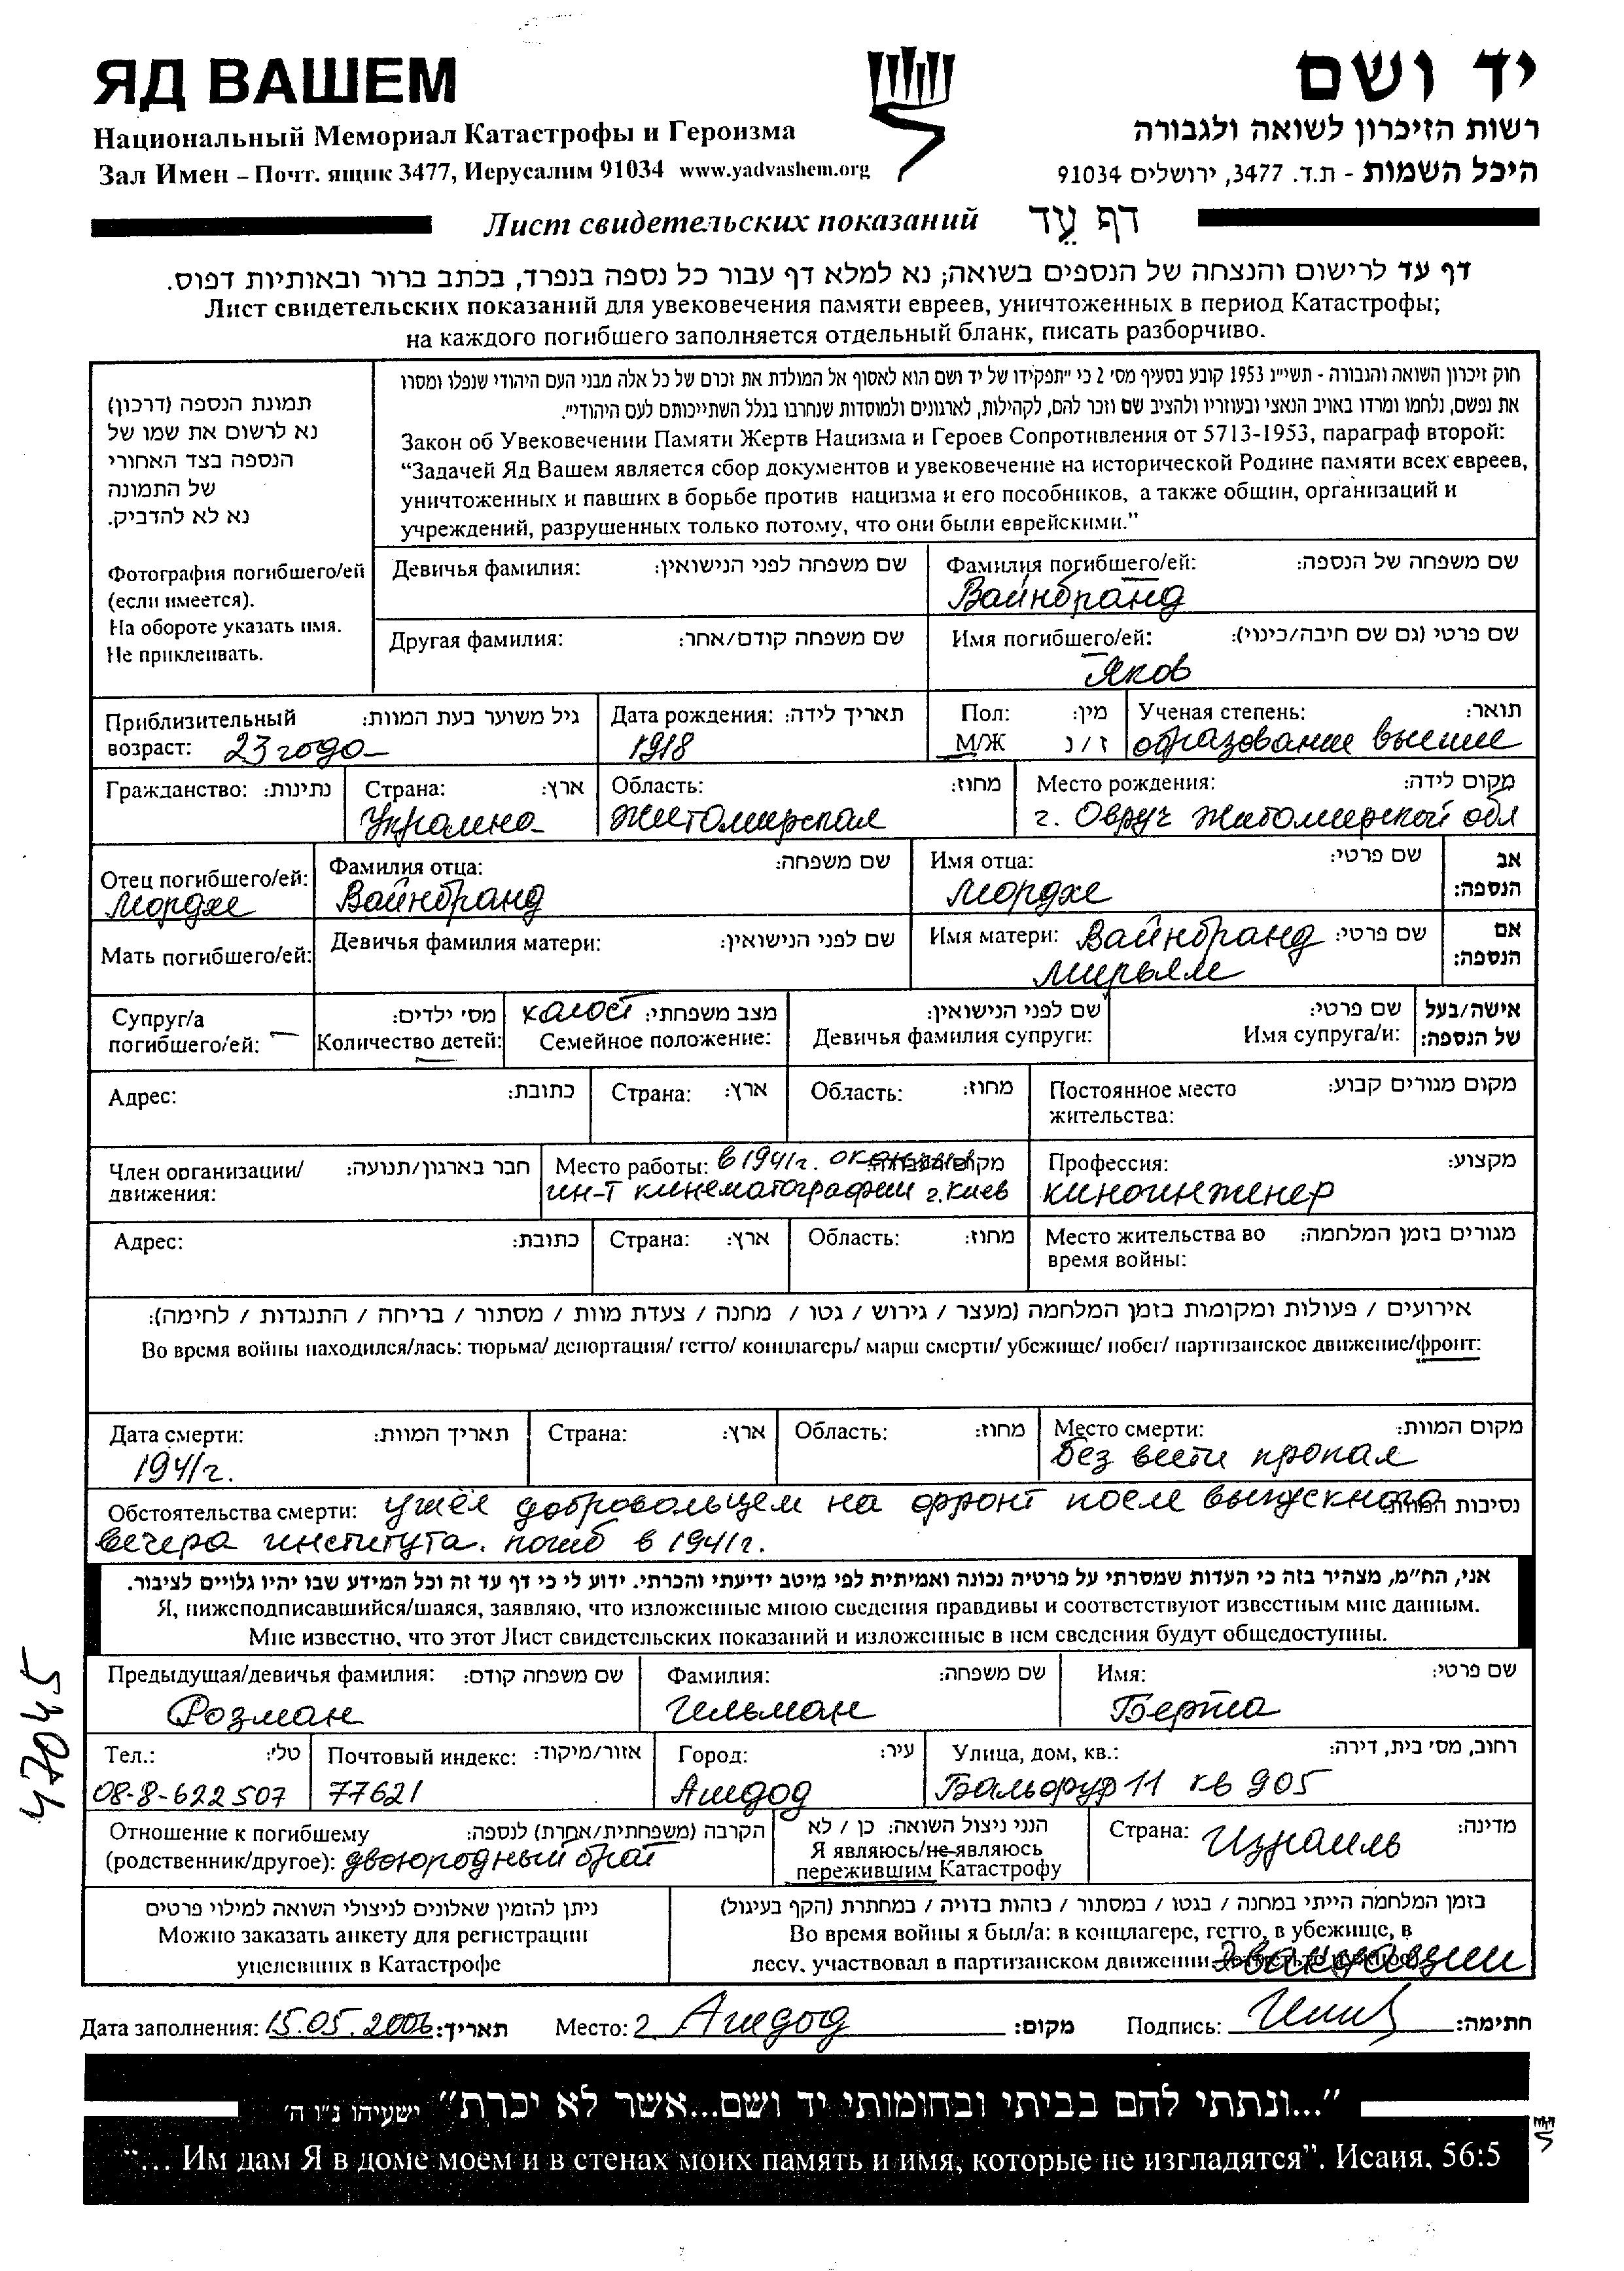 ЯД ВАШЕМ
Национальный Мемориал Катастрофы и Героизма
Зал Имен – Почт. ящик 3477, Иерусалим 91034 www.yadvashem.org
יד ושם
רשות הזיכרון לשואה ולגבורה
היכל השמות - ת.ד. 3477, ירושלים 91034
Лист свидетельских показаний דף עֵד
דף עד לרישום והנצחה של הנספים בשואה; נא למלא דף עבור כל נספה בנפרד, בכתב ברור ובאותיות דפוס.
Лист свидетельских показаний для увековечения памяти евреев, уничтоженных в период Катастрофы;
на каждого погибшего заполняется отдельный бланк, писать разборчиво.
תמונת הנספה (דרכון)
נא לרשום את שמו של
הנספה בצד האחורי
של התמונה
נא לא להדביק.
Фотография погибшего/ей
(если имеется).
На обороте указать имя.
Не приклеивать.
חוק זיכרון השואה והגבורה - תשי"ג 1953 קובע בסעיף מס' 2 כי "תפקידו של יד ושם הוא לאסוף אל המולדת את זכרם של כל אלה מבני העם היהודי שנפלו ומסרו
את נפשם, נלחמו ומרדו באויב הנאצי ובעוזריו ולהציב שם וזכר להם, לקהילות, לארגונים ולמוסדות שנחרבו בגלל השתייכותם לעם היהודי".
Закон об Увековечении Памяти Жертв Нацизма и Героев Сопротивления от 5713-1953, параграф второй:
“Задачей Яд Вашем является сбор документов и увековечение на исторической Родине памяти всех евреев,
уничтоженных и павших в борьбе против нацизма и его пособников, а также общин, организаций и
учреждений, разрушенных только потому, что они были еврейскими.”
Девичья фамилия: שם משפחה לפני הנישואין:
Фамилия погибшего/ей: שם משפחה של הנספה:
Вайнбранд
Другая фамилия: שם משפחה קודם/אחר:
Имя погибшего/ей: שם פרטי (גם שם חיבה/כינוי):
Яков
Приблизительный возраст: גיל משוער בעת המוות:
23 года
Дата рождения: תאריך לידה:
1918
Пол: מין:
М/Ж ז / נ
Ученая степень: תואר:
образование высшее
Гражданство: נתינות:
Страна: ארץ:
Украина
Область: מחוז:
Житомирская
Место рождения: מקום לידה:
г. Овруч Житомирской обл
Отец погибшего/ей:
Мордхе
Фамилия отца: שם משפחה:
Вайнбранд
Имя отца: שם פרטי:
Мордхе
אב
הנספה:
Мать погибшего/ей:
Девичья фамилия матери: שם לפני הנישואין:
Имя матери: Вайнбранд שם פרטי:
Мирьям
אם
הנספה:
Супруг/а
погибшего/ей: —
מס' ילדים:
Количество детей: —
холост מצב משפחתי:
Семейное положение:
שם לפני הנישואין:
Девичья фамилия супруги:
שם פרטי:
Имя супруга/и:
אישה/בעל
של הנספה:
Адрес: כתובת:
Страна: ארץ:
Область: מחוז:
Постоянное место
жительства:
מקום מגורים קבוע:
Член организации/
движения:
חבר בארגון/תנועה:
Место работы: в 1941г.
ин-т кинематографии г. Киев
Профессия: מקצוע:
киноинженер
Адрес: כתובת:
Страна: ארץ:
Область: מחוז:
Место жительства во
время войны:
מגורים בזמן המלחמה:
אירועים / פעולות ומקומות בזמן המלחמה (מעצר / גירוש / גטו / מחנה / צעדת מוות / מסתור / בריחה / התנגדות / לחימה):
Во время войны находился/лась: тюрьма/ депортация/ гетто/ концлагерь/ марш смерти/ убежище/ побег/ партизанское движение/фронт:
Дата смерти: תאריך המוות:
1941г.
Страна: ארץ:
Область: מחוז:
Место смерти: מקום המוות:
Без вести пропал
Обстоятельства смерти: ушёл добровольцем на фронт после выпускного נסיבות המוות:
вечера института. погиб в 1941г.
אני, הח"מ, מצהיר בזה כי העדות שמסרתי על פרטיה נכונה ואמיתית לפי מיטב ידיעתי והכרתי. ידוע לי כי דף עד זה וכל המידע שבו יהיו גלויים לציבור.
Я, нижеподписавшийся/шаяся, заявляю, что изложенные мною сведения правдивы и соответствуют известным мне данным.
Мне известно, что этот Лист свидетельских показаний и изложенные в нем сведения будут общедоступны.
47045
Предыдущая/девичья фамилия: שם משפחה קודם:
Розман
Фамилия: שם משפחה:
Гильман
Имя: שם פרטי:
Берта
Тел.: טל':
08-8-622507
Почтовый индекс: אזור/מיקוד:
77621
Город: עיר:
Ашдод
Улица, дом, кв.: רחוב, מס' בית, דירה:
Бальфур 11 кв 905
Отношение к погибшему
(родственник/другое): двоюродный брат
הקרבה (משפחתית/אחרת) לנספה:
הנני ניצול השואה: כן / לא
Я являюсь/не являюсь
пережившим Катастрофу
Страна: Израиль מדינה:
ניתן להזמין שאלונים לניצולי השואה למילוי פרטים
Можно заказать анкету для регистрации
уцелевших в Катастрофе
בזמן המלחמה הייתי במחנה / בגטו / במסתור / בזהות בדויה / במחתרת (הקף בעיגול)
Во время войны я был/а: в концлагере, гетто, в убежище, в
лесу, участвовал в партизанском движении
Эвакуации
Дата заполнения: 15.05.2006 תאריך: Место: г. Ашдод מקום: Подпись: חתימה:
"...ונתתי להם בביתי ובחומותי יד ושם...אשר לא יכרת" ישעיהו נ"ו ה'
“... Им дам Я в доме моем и в стенах моих память и имя, которые не изгладятся”. Исаия, 56:5